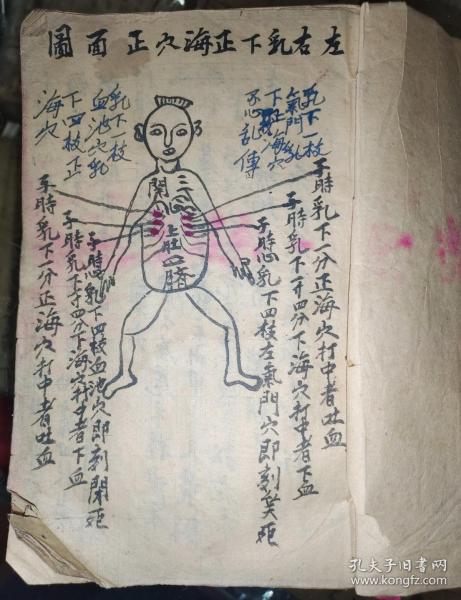 左右乳下正海穴正面圖
乳下一枝
氣門乳
下正海穴
不心乱傳
子時乳下一分正海穴打中者吐血
子時乳下一寸四分下海穴打中者下血
子時心乳下四枝左氣門穴即刻笑死
関
三心
上肚口臍
乳下一枝
血池穴乳
下四枝正
海穴
子時心乳下四枝血池穴即刻閉死
子時乳下一寸四分下海穴打中者下血
子時乳下一分正海穴打中者吐血
孔夫子旧書网
www.kongfz.com